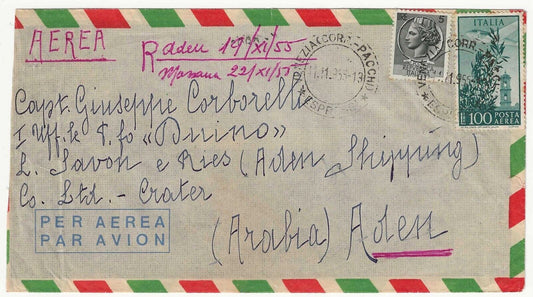 AEREA
R aden 19/XI/55
Massaua 22/XI/55
VENEZIA (CORR.-PACCHI)
ESPRESSI
5
ITALIA
L. 100 POSTA AEREA
Capt. Giuseppe Corborelli
I Uff.le P.fo «Duino»
L. Savon e Ries (Aden Shipping)
Co. Ltd. - Crater
PER AEREA
PAR AVION
(Arabia) Aden